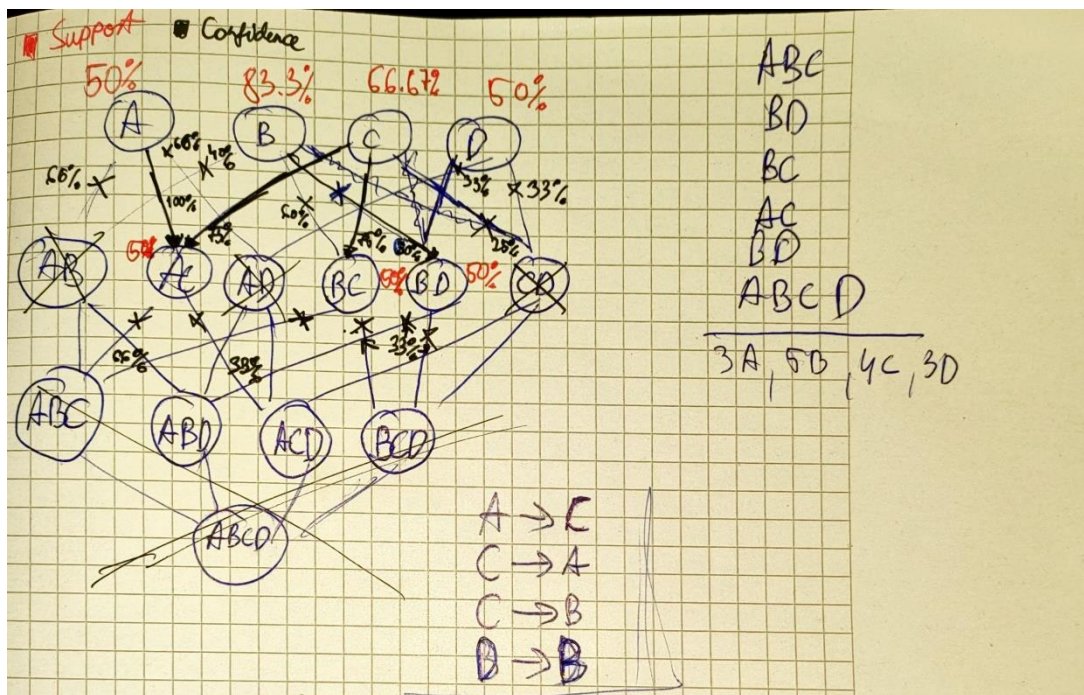 Support Confidence
50% 83.3% 66.67% 50%
A B C D
66% 40% 33% 33%
66%
100% 75% 60% 75% 25%
50% 50% 50%
AB AC AD BC BD CD
66% 33% 33%
ABC ABD ACD BCD
ABCD
A → C
C → A
C → B
B → B
ABC
BD
BC
AC
BD
ABCD
3A, 5B, 4C, 3D